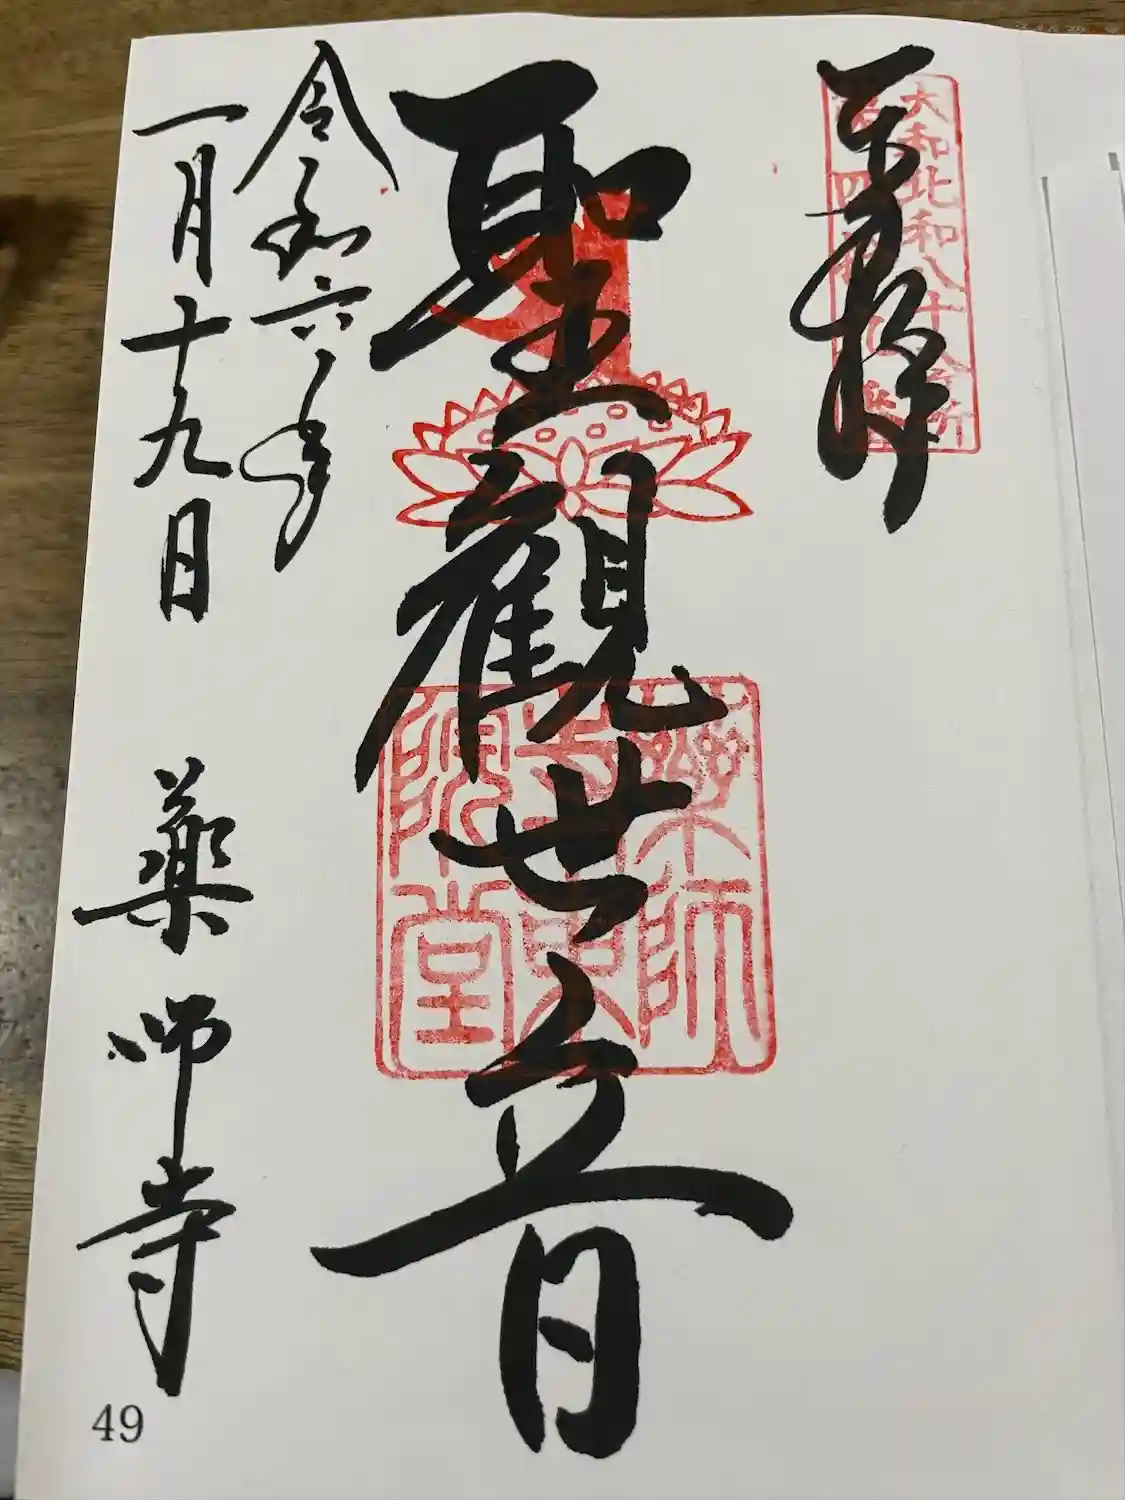 奉拝
大和北部八十八ヶ所
第四十九番
聖觀世音
薬師寺東院堂
令和六年
一月十九日
薬師寺
49